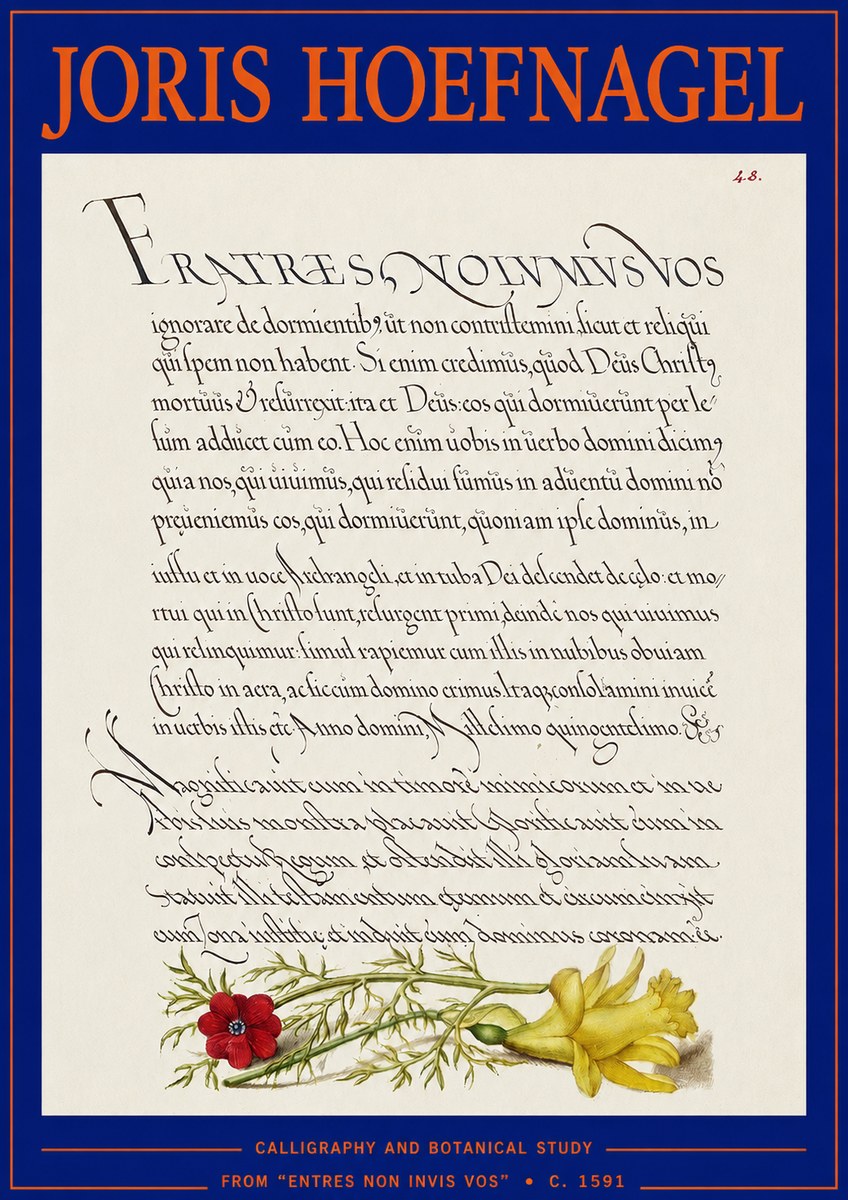 JORIS HOEFNAGEL
48.
FRATRES NOLVMVS VOS
ignorare de dormientib9, ut non contristemini, sicut et reliqui
qui spem non habent. Si enim credimus, quod Deus Christ9
mortuus & resurrexit: ita et Deus: eos qui dormiuerunt per Ie=
sum adducet cum eo. Hoc enim uobis in uerbo domini dicim9
quia nos, qui uiuimus, qui residui sumus in aduentu domini nō
preueniemus eos, qui dormiuerunt, quoniam ipse dominus, in
iussu et in uoce Archangeli, et in tuba Dei descendet de cęlo: et mo=
rtui qui in Christo sunt, resurgent primi, deinde nos qui uiuimus
qui relinquimur: simul rapiemur cum illis in nubibus obuiam
Christo in aera, ac sic cum domino erimus. Itaq; consolamini inuicē
in uerbis istis etc. Anno domini, Millesimo quingentesimo.
Magnificauit eum in timore inimicorum et in ue
rbis suis monstra placauit Glorificauit eum in
conspectu Regum et ostendit illi gloriam suam
Statuit illi testamentum eternum et circumcinxit
eum Zona iustitię, et induit eum dominus coronam.
CALLIGRAPHY AND BOTANICAL STUDY
FROM “ENTRES NON INVIS VOS” • C. 1591